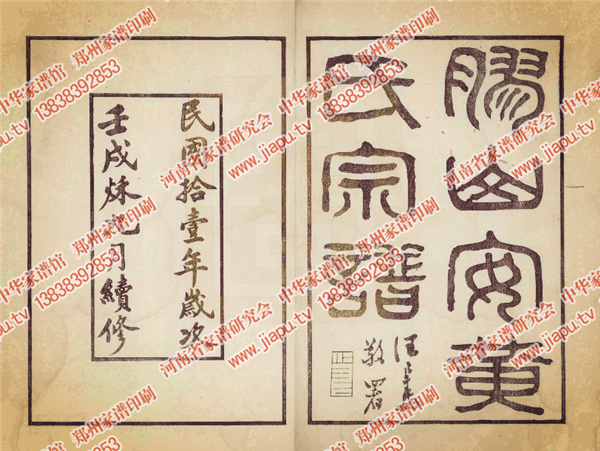 膠山安黃
氏宗譜
汪
敬署
民國拾壹年歲次
壬戌秌九月續修
中华家谱馆 郑州家谱印刷
www.jiapu.tv 13838392853
河南省家谱研究会